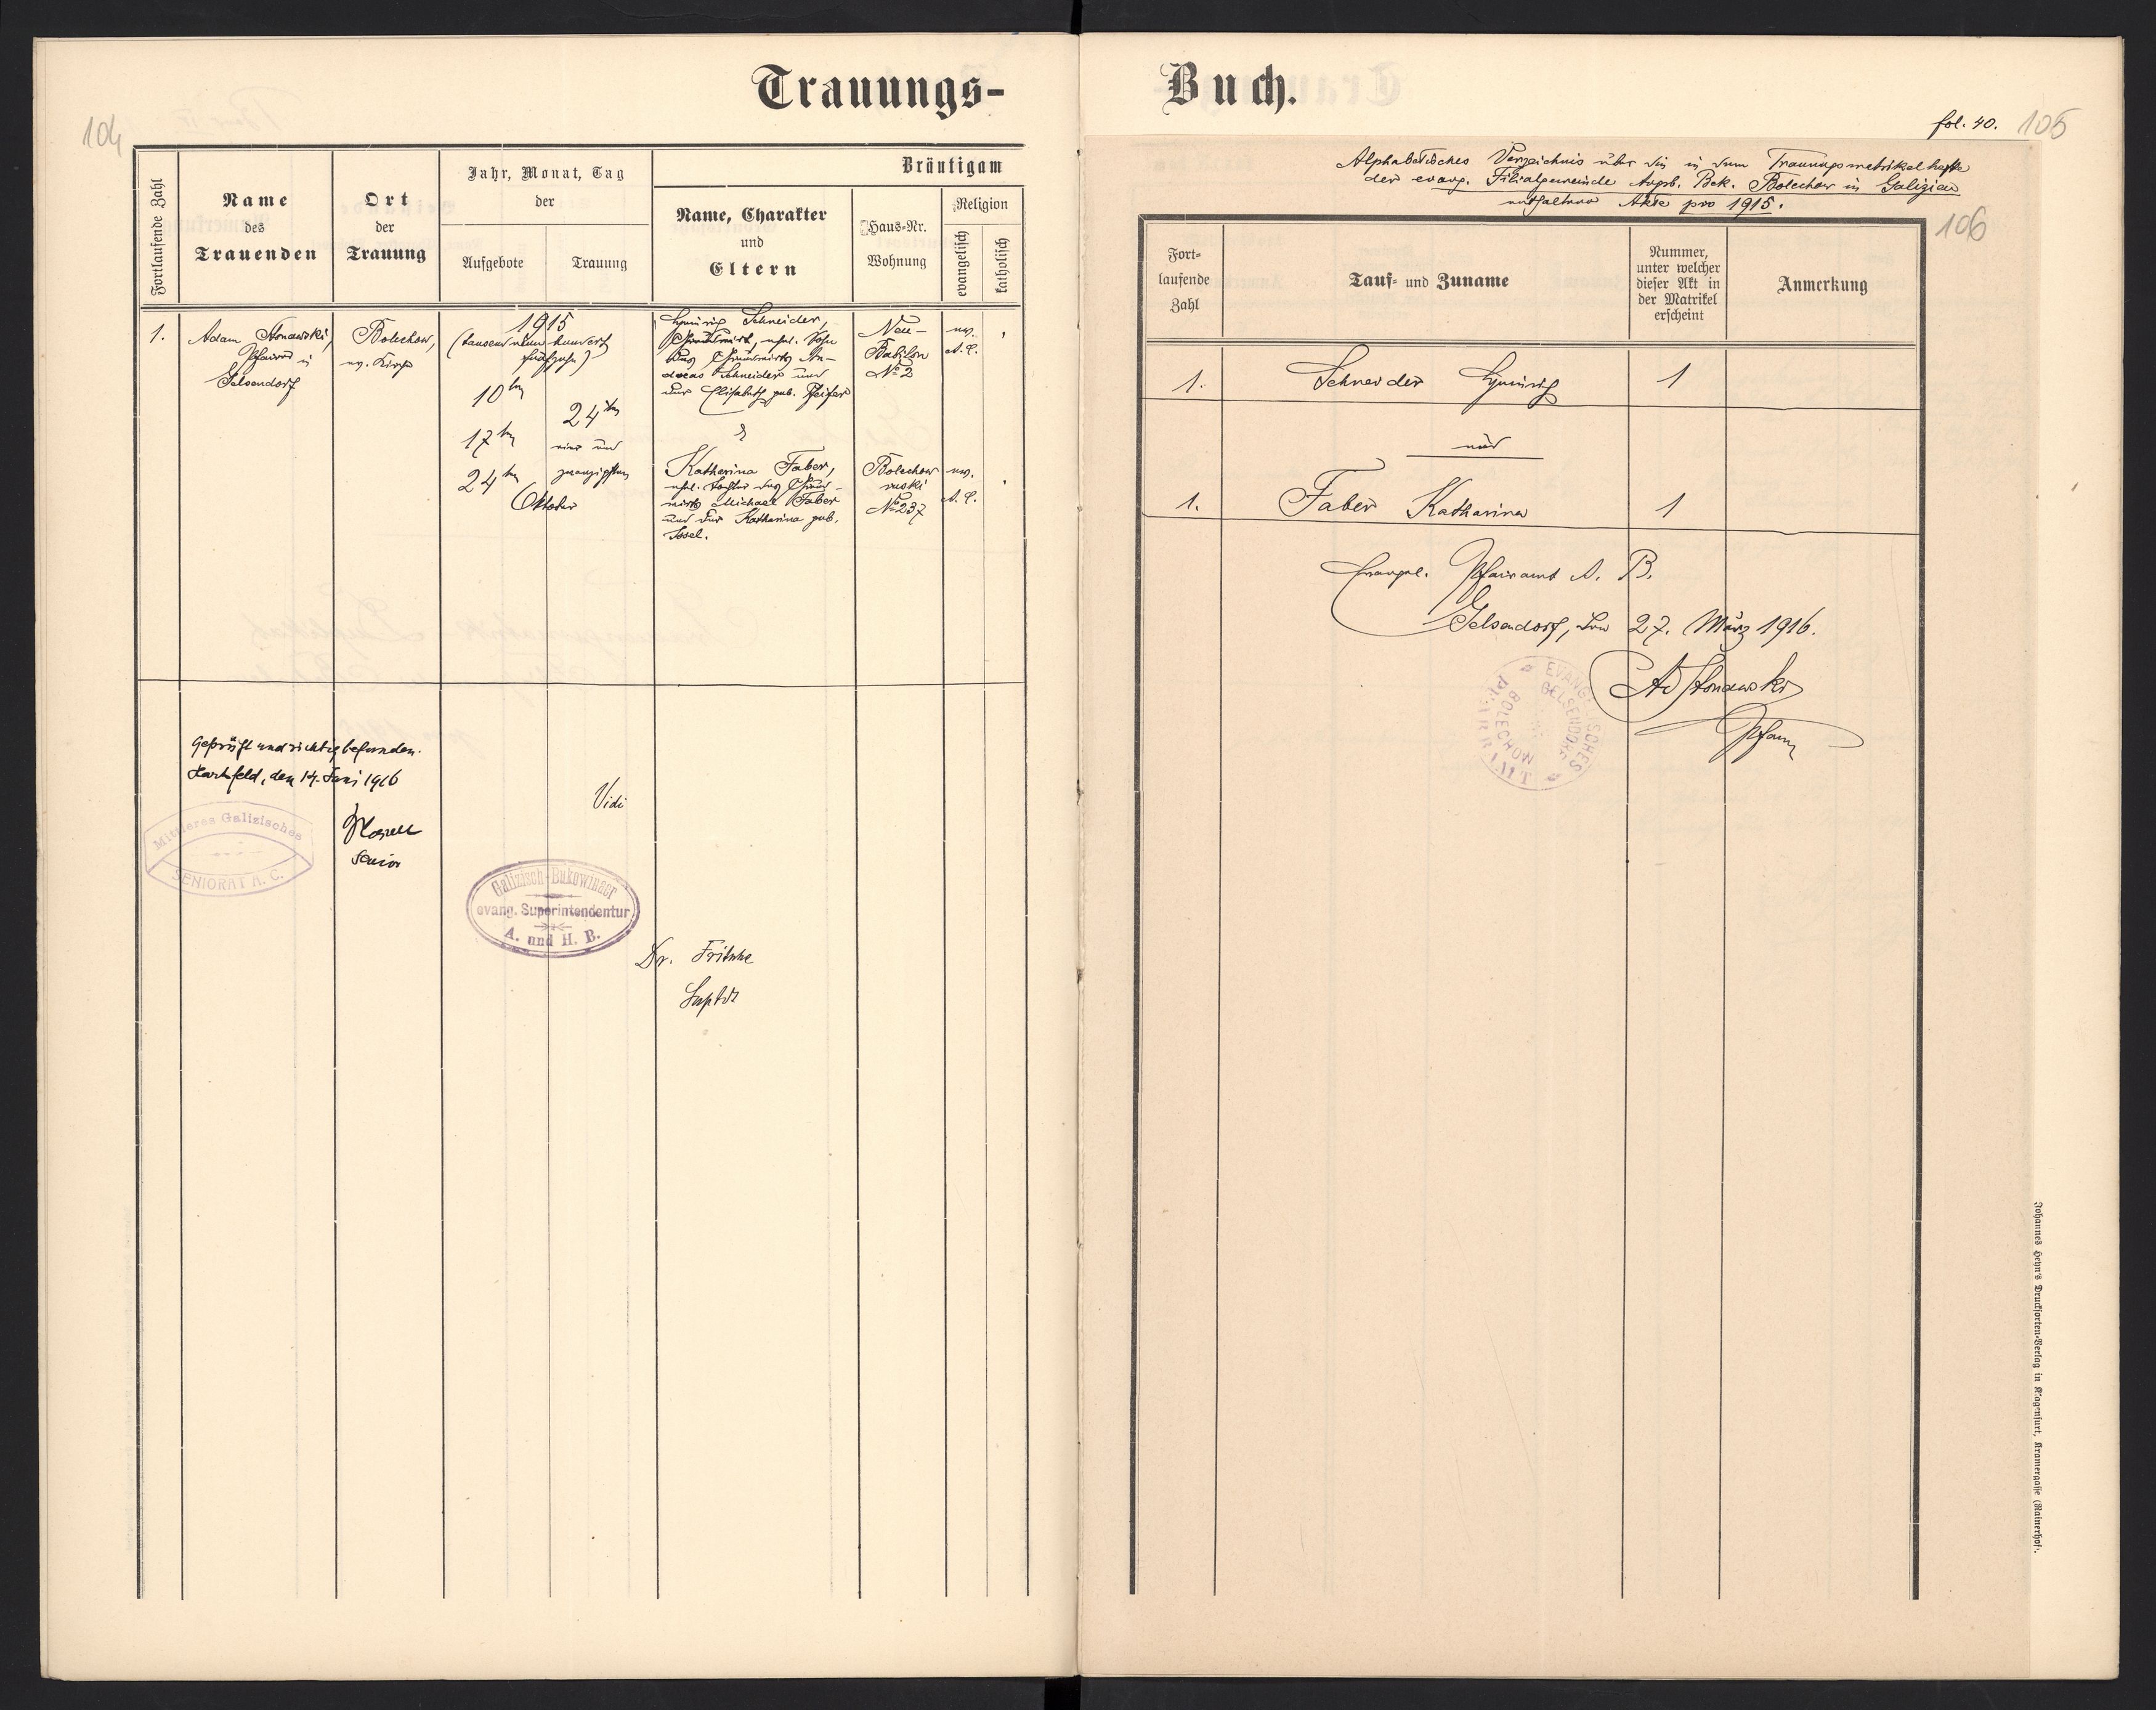 Trauungs-
104
Fortlaufende Zahl
Name
des
Trauenden
Ort
der
Trauung
Jahr, Monat, Tag
der
Aufgebote
Trauung
Bräutigam
Name, Charakter
und
Eltern
Haus-Nr.
Wohnung
Religion
evangelisch
katholisch
1.
Adam Stonawski,
Pfarrer in
Gelsendorf
Bolechow,
ev. Kirche
1915
(tausend neun hundert
fünfzehn)
10ten
17ten
24ten
24ten
vier und
zwanzigsten
Oktober
Heinrich Schneider,
Grundwirt, ehel. Sohn
des Grundwirts An-
dreas Schneider und
der Elisabeth geb. Pfeifer
&
Neu-
Babilon
No 2
ev.
A. C.
Katharina Faber,
ehel. Tochter des Grund-
wirts Michael Faber
und der Katharina geb.
Issel.
Bolechow
ruski
No 237
ev.
A. C.
Geprüft und richtig befunden.
Hartfeld, den 14. Juni 1916
Senior
Mittleres Galizisches
SENIORAT A. C.
Vidi
Galizisch-Bukowinaer
evang. Superintendentur
A. und H. B.
Dr. Fritsche
Suptdt
Buch.
fol. 40.
105
Alphabetisches Verzeichnis über die in dem Trauungsmatrikelhefte
der evang. Filialgemeinde Augsb. Bek. Bolechow in Galizien
enthaltene Akte pro 1915.
106
Fort-
laufende
Zahl
Tauf- und Zuname
Nummer,
unter welcher
dieser Akt in
der Matrikel
erscheint
Anmerkung
1. Schneider Heinrich 1
und
1. Faber Katharina 1
Evangel. Pfarramt A. B.
Gelsendorf, den 27. März 1916.
A Stonawski
Pfarrer
EVANGELISCHES
PFARRAMT
GELSENDORF
BOLECHOW
Johannes Heyn's Drucksorten-Verlag in Klagenfurt, Kramergasse (Rainerhof).